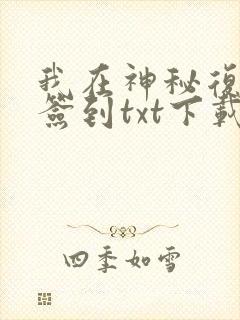 我在神秘復
簽到txt下載
四季如雪